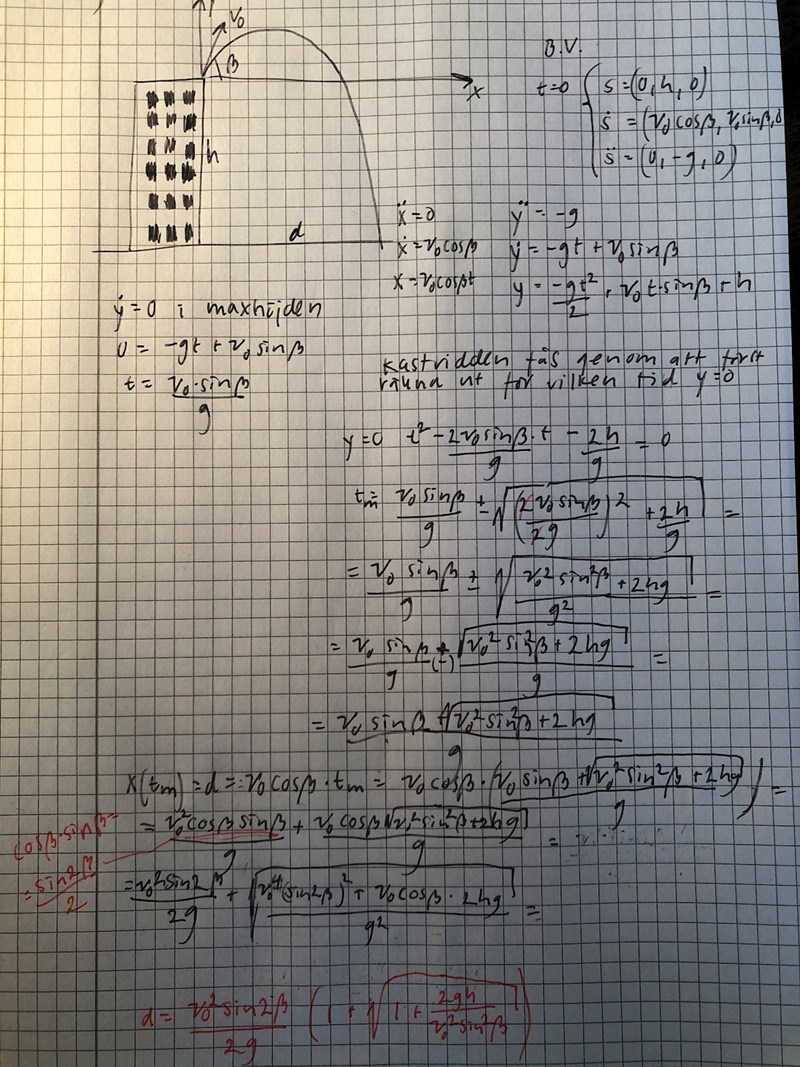 y
v₀
β
x
h
d
B.V.
t=0 { s = (0, h, 0)
ṡ = (v₀cosβ, v₀sinβ, 0
s̈ = (0, -g, 0)
ẍ = 0   ÿ = -g
ẋ = v₀cosβ   ẏ = -gt + v₀sinβ
x = v₀cosβt   y = -gt²/2 + v₀t·sinβ + h
ẏ = 0 i maxhöjden
0 = -gt + v₀sinβ
t = v₀·sinβ/g
Kastvidden fås genom att först
räkna ut för vilken tid y=0
y=0   t² - 2v₀sinβ/g · t - 2h/g = 0
tₘ = v₀sinβ/g ± √((2v₀sinβ/2g)² + 2h/g) =
= v₀ sinβ/g ± √((v₀²sin²β + 2hg)/g²) =
= v₀ sinβ/g +(-) √(v₀²sin²β + 2hg)/g =
= (v₀ sinβ + √(v₀²sin²β + 2hg))/g
x(tₘ) = d = v₀cosβ · tₘ = v₀cosβ · (v₀ sinβ + √(v₀²sin²β + 2hg))/g =
= v₀²cosβ sinβ/g + v₀cosβ√(v₀²sin²β + 2hg)/g =
cosβ·sinβ =
= sin2β/2
= v₀²sin2β/2g + √((v₀⁴(sin2β)² + v₀cosβ · 2hg)/g²) =
d = v₀²sin2β/2g (1 + √(1 + 2gh/v₀²sin²β))